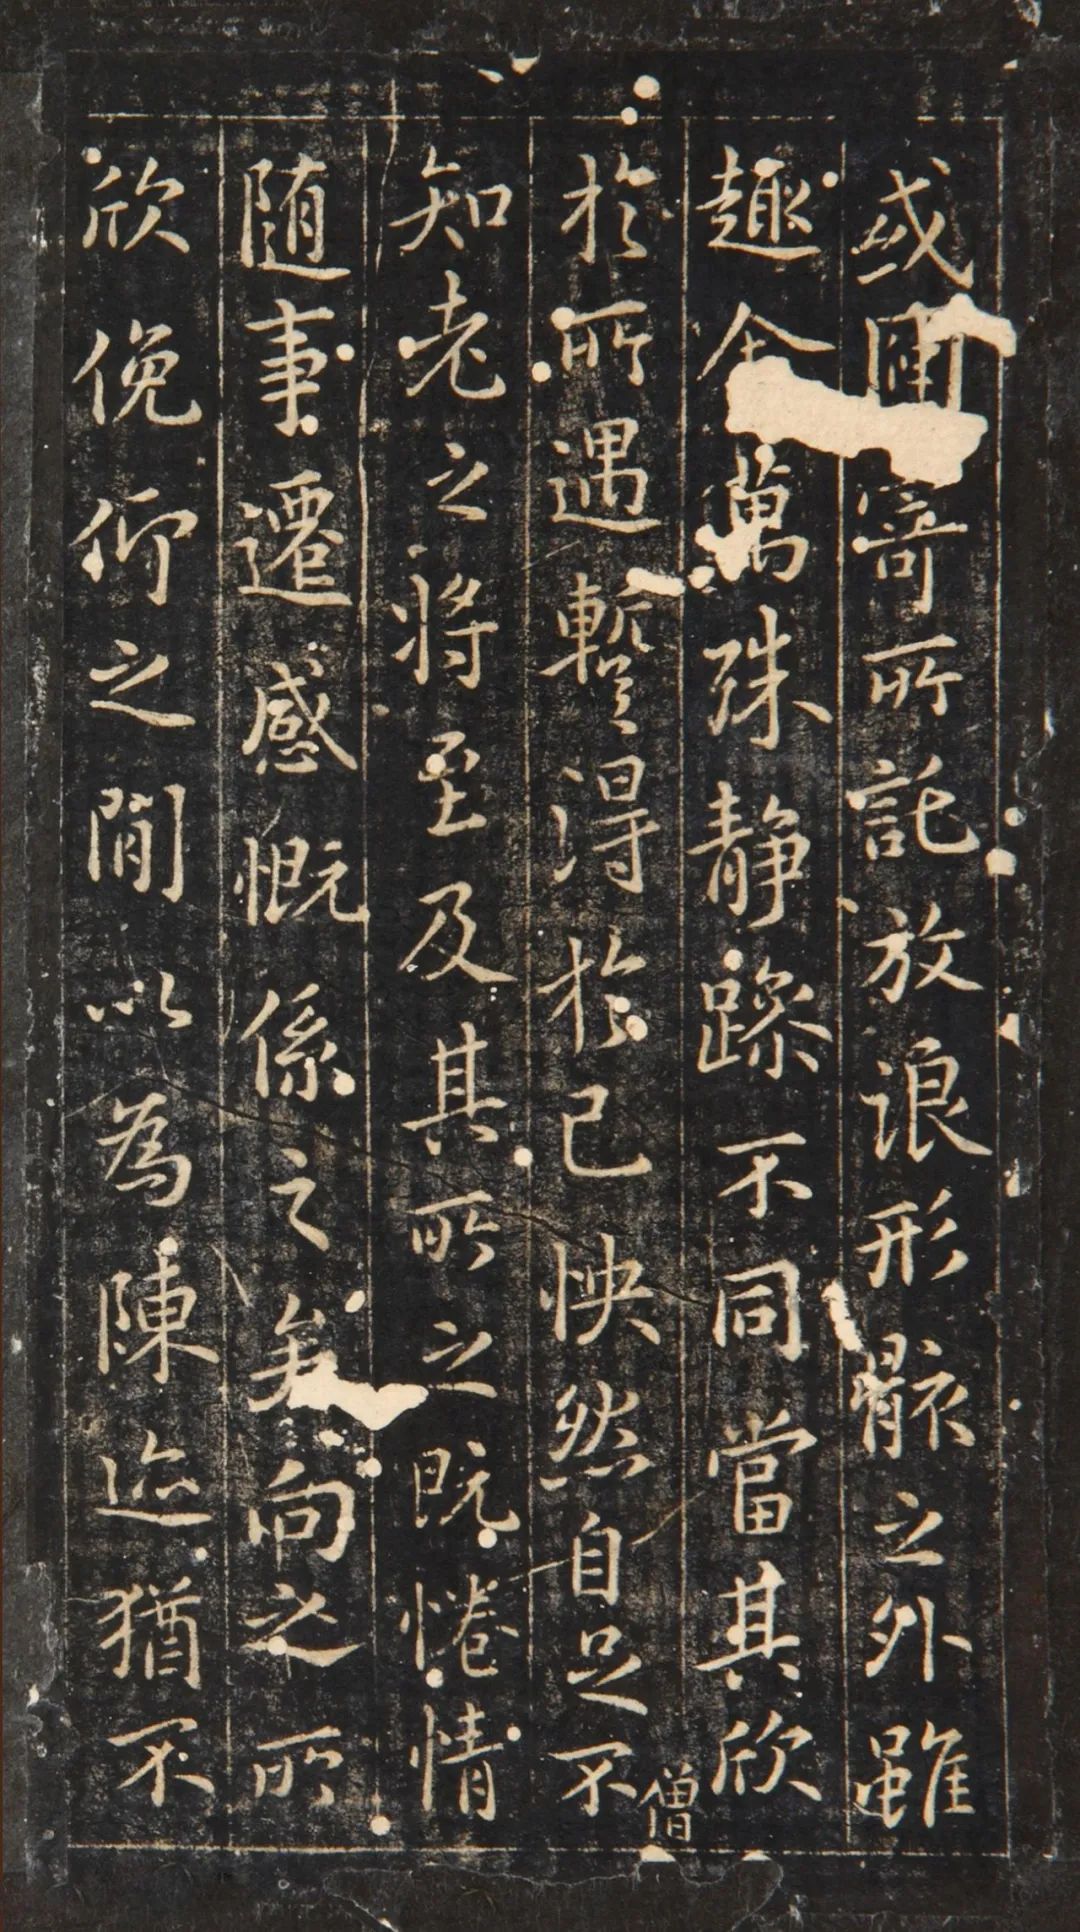 或因寄所託放浪形骸之外雖
趣舍萬殊静躁不同當其欣
僧
於所遇蹔得於己怏然自足不
知老之將至及其所之既惓情
随事遷感慨係之矣向之所
欣俛仰之閒以為陳迹猶不